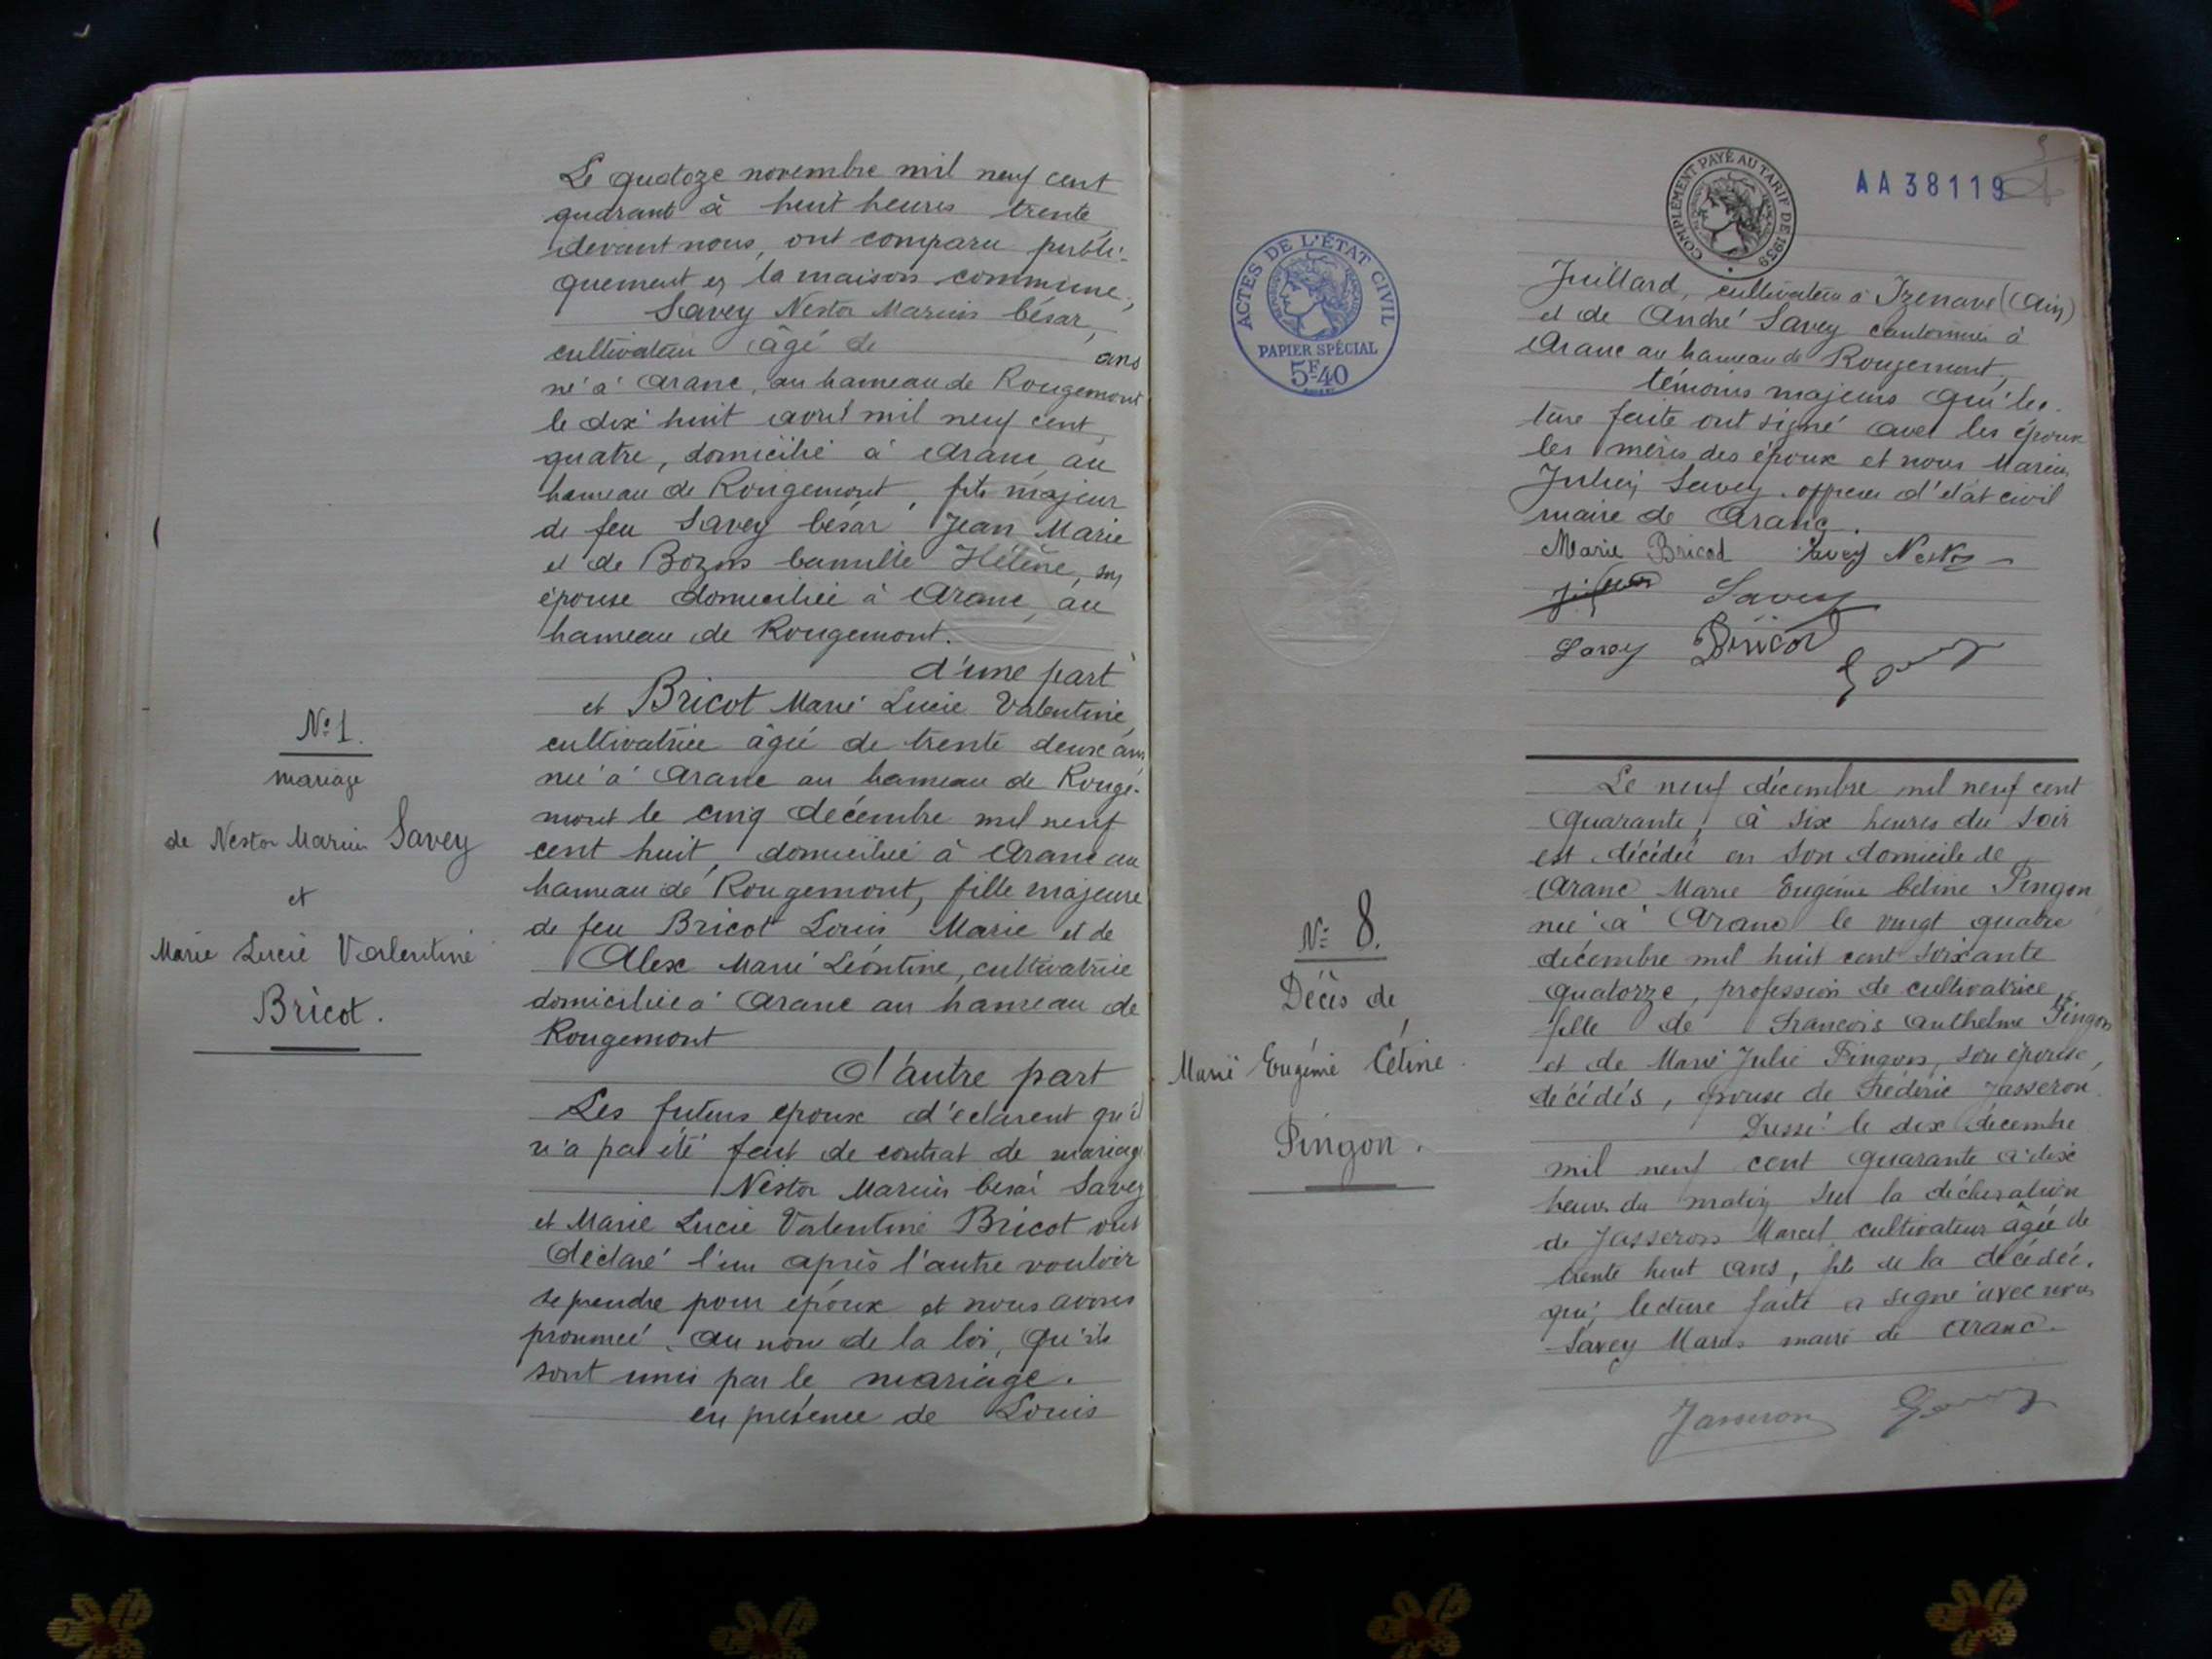 Le quatoze novembre mil neuf cent
quarant à huit heures trente
devant nous, ont comparu publi-
quement en la maison commune,
Savey Nestor Marius César,
cultivateur âgé de ans
né à Aranc, au hameau de Rougemont
le dix huit avril mil neuf cent
quatre, domicilié à Aranc au
hameau de Rougemont, fils majeur
de feu Savey César Jean Marie
et de Bozon Camille Hélène, son
épouse domiciliée à Aranc, au
hameau de Rougemont.
d'une part
et Bricot Marie Lucie Valentine
cultivatrice âgée de trente deux ans
née à Aranc au hameau de Rouge-
mont le cinq décembre mil neuf
cent huit, domiciliée à Aranc au
hameau de Rougemont, fille majeure
de feu Bricot Louis Marie et de
Alex Marie Léontine, cultivatrice
domiciliée à Aranc au hameau de
Rougemont
d'autre part
Les futurs époux d'éclarent qu'il
n'a pas été fait de contrat de mariage
Nestor Marius César Savey
et Marie Lucie Valentine Bricot ont
déclaré l'un après l'autre vouloir
se prendre pour époux et nous avons
prononcé, au nom de la loi, qu'ils
sont unis par le mariage.
en présence de Louis
N° 1.
mariage
de Nestor Marius Savey
et
Marie Lucie Valentine
Bricot.
COMPLÉMENT PAYÉ AU TARIF DE 1939
AA 38119
ACTES DE L'ÉTAT CIVIL
PAPIER SPÉCIAL
5F40
Juillard, cultivateur à Izenave (Ain)
et de André Savey cantonnier à
Aranc au hameau de Rougemont,
témoins majeurs qui lec-
ture faite ont signé avec les époux
les mères des époux et nous Marius
Julien Savey officier d'état civil
maire de Aranc.
Marie Bricot Savey Nestor
Savey
Savey Bricot
Le neuf décembre mil neuf cent
quarante, à six heures du soir
est décédée en son domicile de
Aranc Marie Eugénie Céline Pingon
née à Aranc le vingt quatre
décembre mil huit cent soixante
quatorze, profession de cultivatrice
fille de Francois Anthelme Pingon
et de Marie Julie Pingon, son épouse,
décédés, épouse de Fréderic Jasseron.
Dressé le dix décembre
mil neuf cent quarante à dix
heures du matin sur la déclaration
de Jasseron Marcel, cultivateur âgée de
trente huit ans, fils de la décédée,
qui, lecture faite a signé avec nous
Savey Marius maire de Aranc.
Jasseron
N° 8.
Décès de
Marie Eugénie Céline
Pingon.